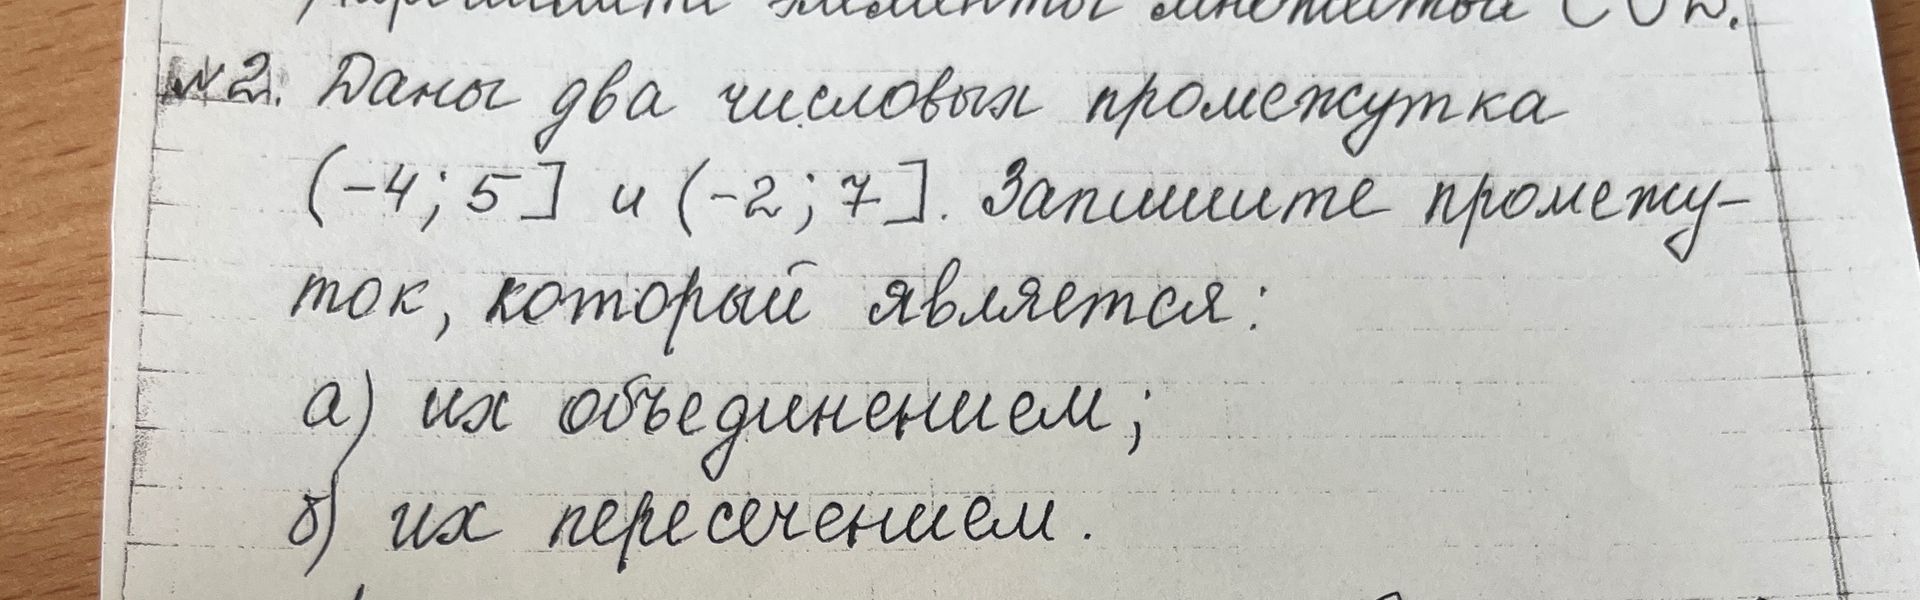 элементы множества C ∪ D.
№2. Даны два числовых промежутка
(-4; 5] и (-2; 7]. Запишите промежу-
ток, который является:
а) их объединением;
б) их пересечением.